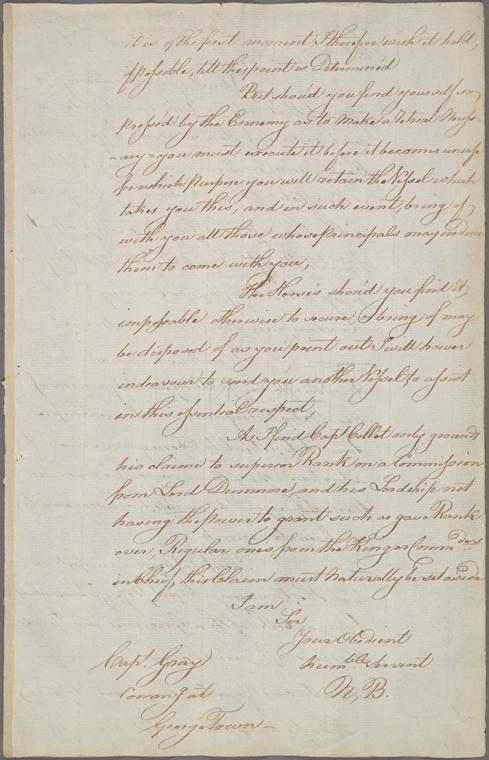 it is of the first moment, I therefore wish it held,
if possible, till this point is Determined
But should you find yourself so
pressed by the Ennemy as to make a retreat Necess-
-ary you must execute it before it becomes unsafe
for which Purpose you will retain the Vessel which
takes you this, and in such event, bring off
with you all those whose Principals may induce
them to come with you,
The Horse's shou'd you find it
impossable otherwise to secure, & bring off may
be disposed of as you point out I will hower
endeavour to send you another Vessel to assist
in this essential respect,
As I find Capt. Collet only grounds
his claime to superior Rank on a Commission
from Lord Dunmore, and his Lordship not
having the power to grant such as gave Rank
over, Regular ones from the King or Comm.ders
in Chief, this Claim must naturally be set aside
I am,
Sir
Your Obedient
Hum.ble Servent
N, B.
Capt. Gray
Coman.g at
George Town